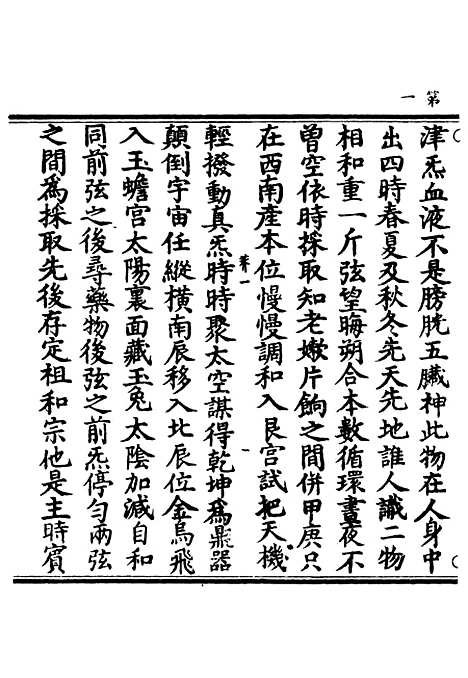 第一
津炁血液不是膀胱五臟神此物在人身中
出四時春夏及秋冬先天先地誰人識二物
相和重一斤弦望晦朔合本數循環晝夜不
曾空依時採取知老嫰片餉之間併甲庚只
在西南產本位慢慢調和入艮宮試把天機
輕撥動真炁時時聚太空謀得乾坤為鼎器
顛倒宇宙任縱橫南辰移入北辰位金烏飛
入玉蟾宮太陽裏面藏玉兔太陰加減自和
同前弦之後尋藥物後弦之前炁停勻兩弦
之間為採取先後存定祖和宗他是主時賓